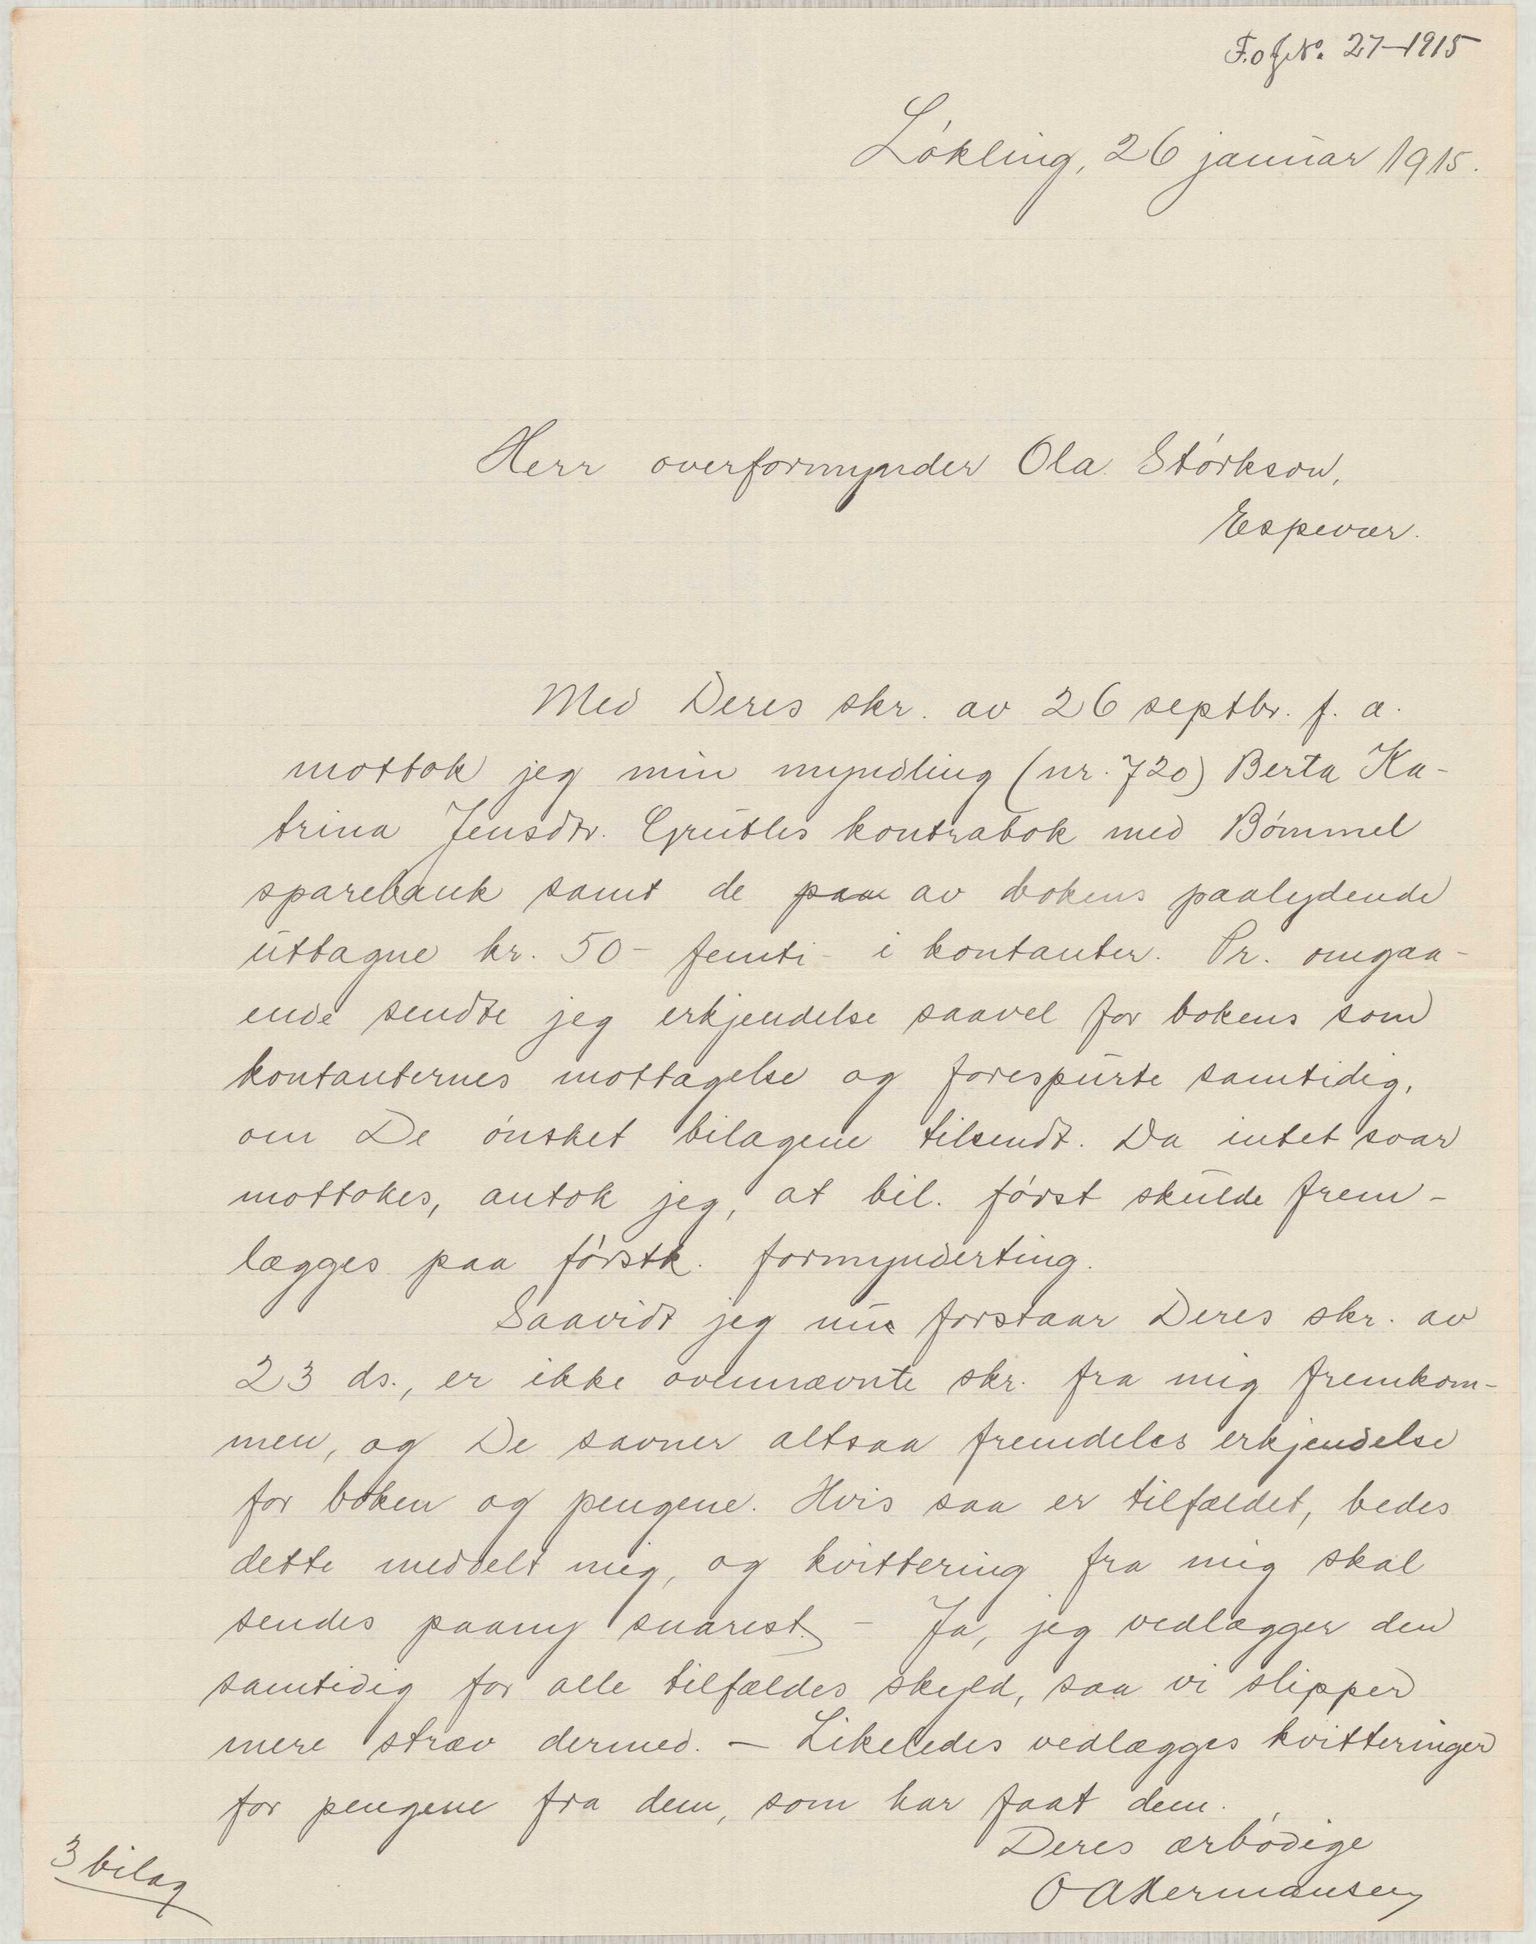 F. o f No. 27-1915
Løkling, 26 januar 1915.
Herr overformynder Ola Størkson,
Espevær.
Med Deres skr. av 26 septbr. f. a.
mottok jeg min myndling (nr. 720) Berta Ka-
trina Jensdtr. Grutles kontrabok med Bømmel
sparebank samt de paa av bokens paalydende
uttagne kr. 50 - femti - i kontanter. Pr. omgaa-
ende sendte jeg erkjendelse saavel for bokens som
kontanternes mottagelse og forespurte samtidig,
om De ønsket bilagene tilsendt. Da intet svar
mottokes, antok jeg, at bil. først skulde frem-
lægges paa førstk. formynderting.
Saavidt jeg nu forstaar Deres skr. av
23 ds., er ikke ovennævnte skr. fra mig fremkom-
men, og De savner altsaa fremdeles erkjendelse
for boken og pengene. Hvis saa er tilfældet, bedes
dette meddelt mig, og kvittering fra mig skal
sendes paany snarest. - Ja, jeg vedlægger den
samtidig for alle tilfældes skyld, saa vi slipper
mere stræv dermed. - Likeledes vedlægges kvitteringer
for pengene fra dem, som har faat dem.
Deres ærbødige
O A Hermansen
3 bilag